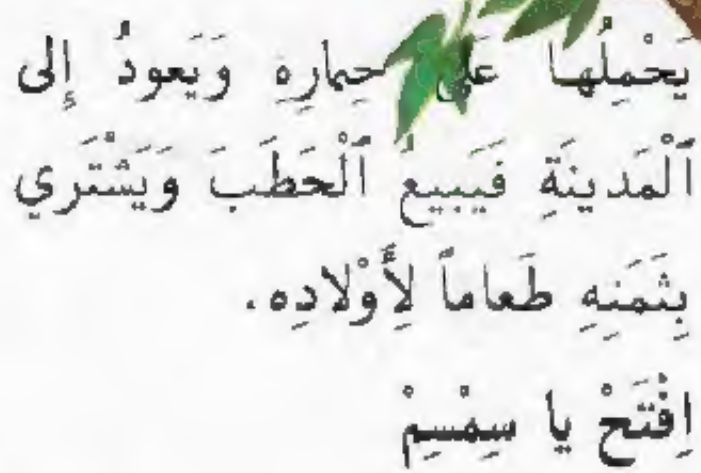 يَحْمِلُها عَلى حِمارِهِ وَيَعودُ إِلى
ٱلْمَدينَةِ فَيَبيعُ ٱلْحَطَبَ وَيَشْتَري
بِثَمَنِهِ طَعاماً لِأَوْلادِه.
اِفْتَحْ يا سِمْسِمْ